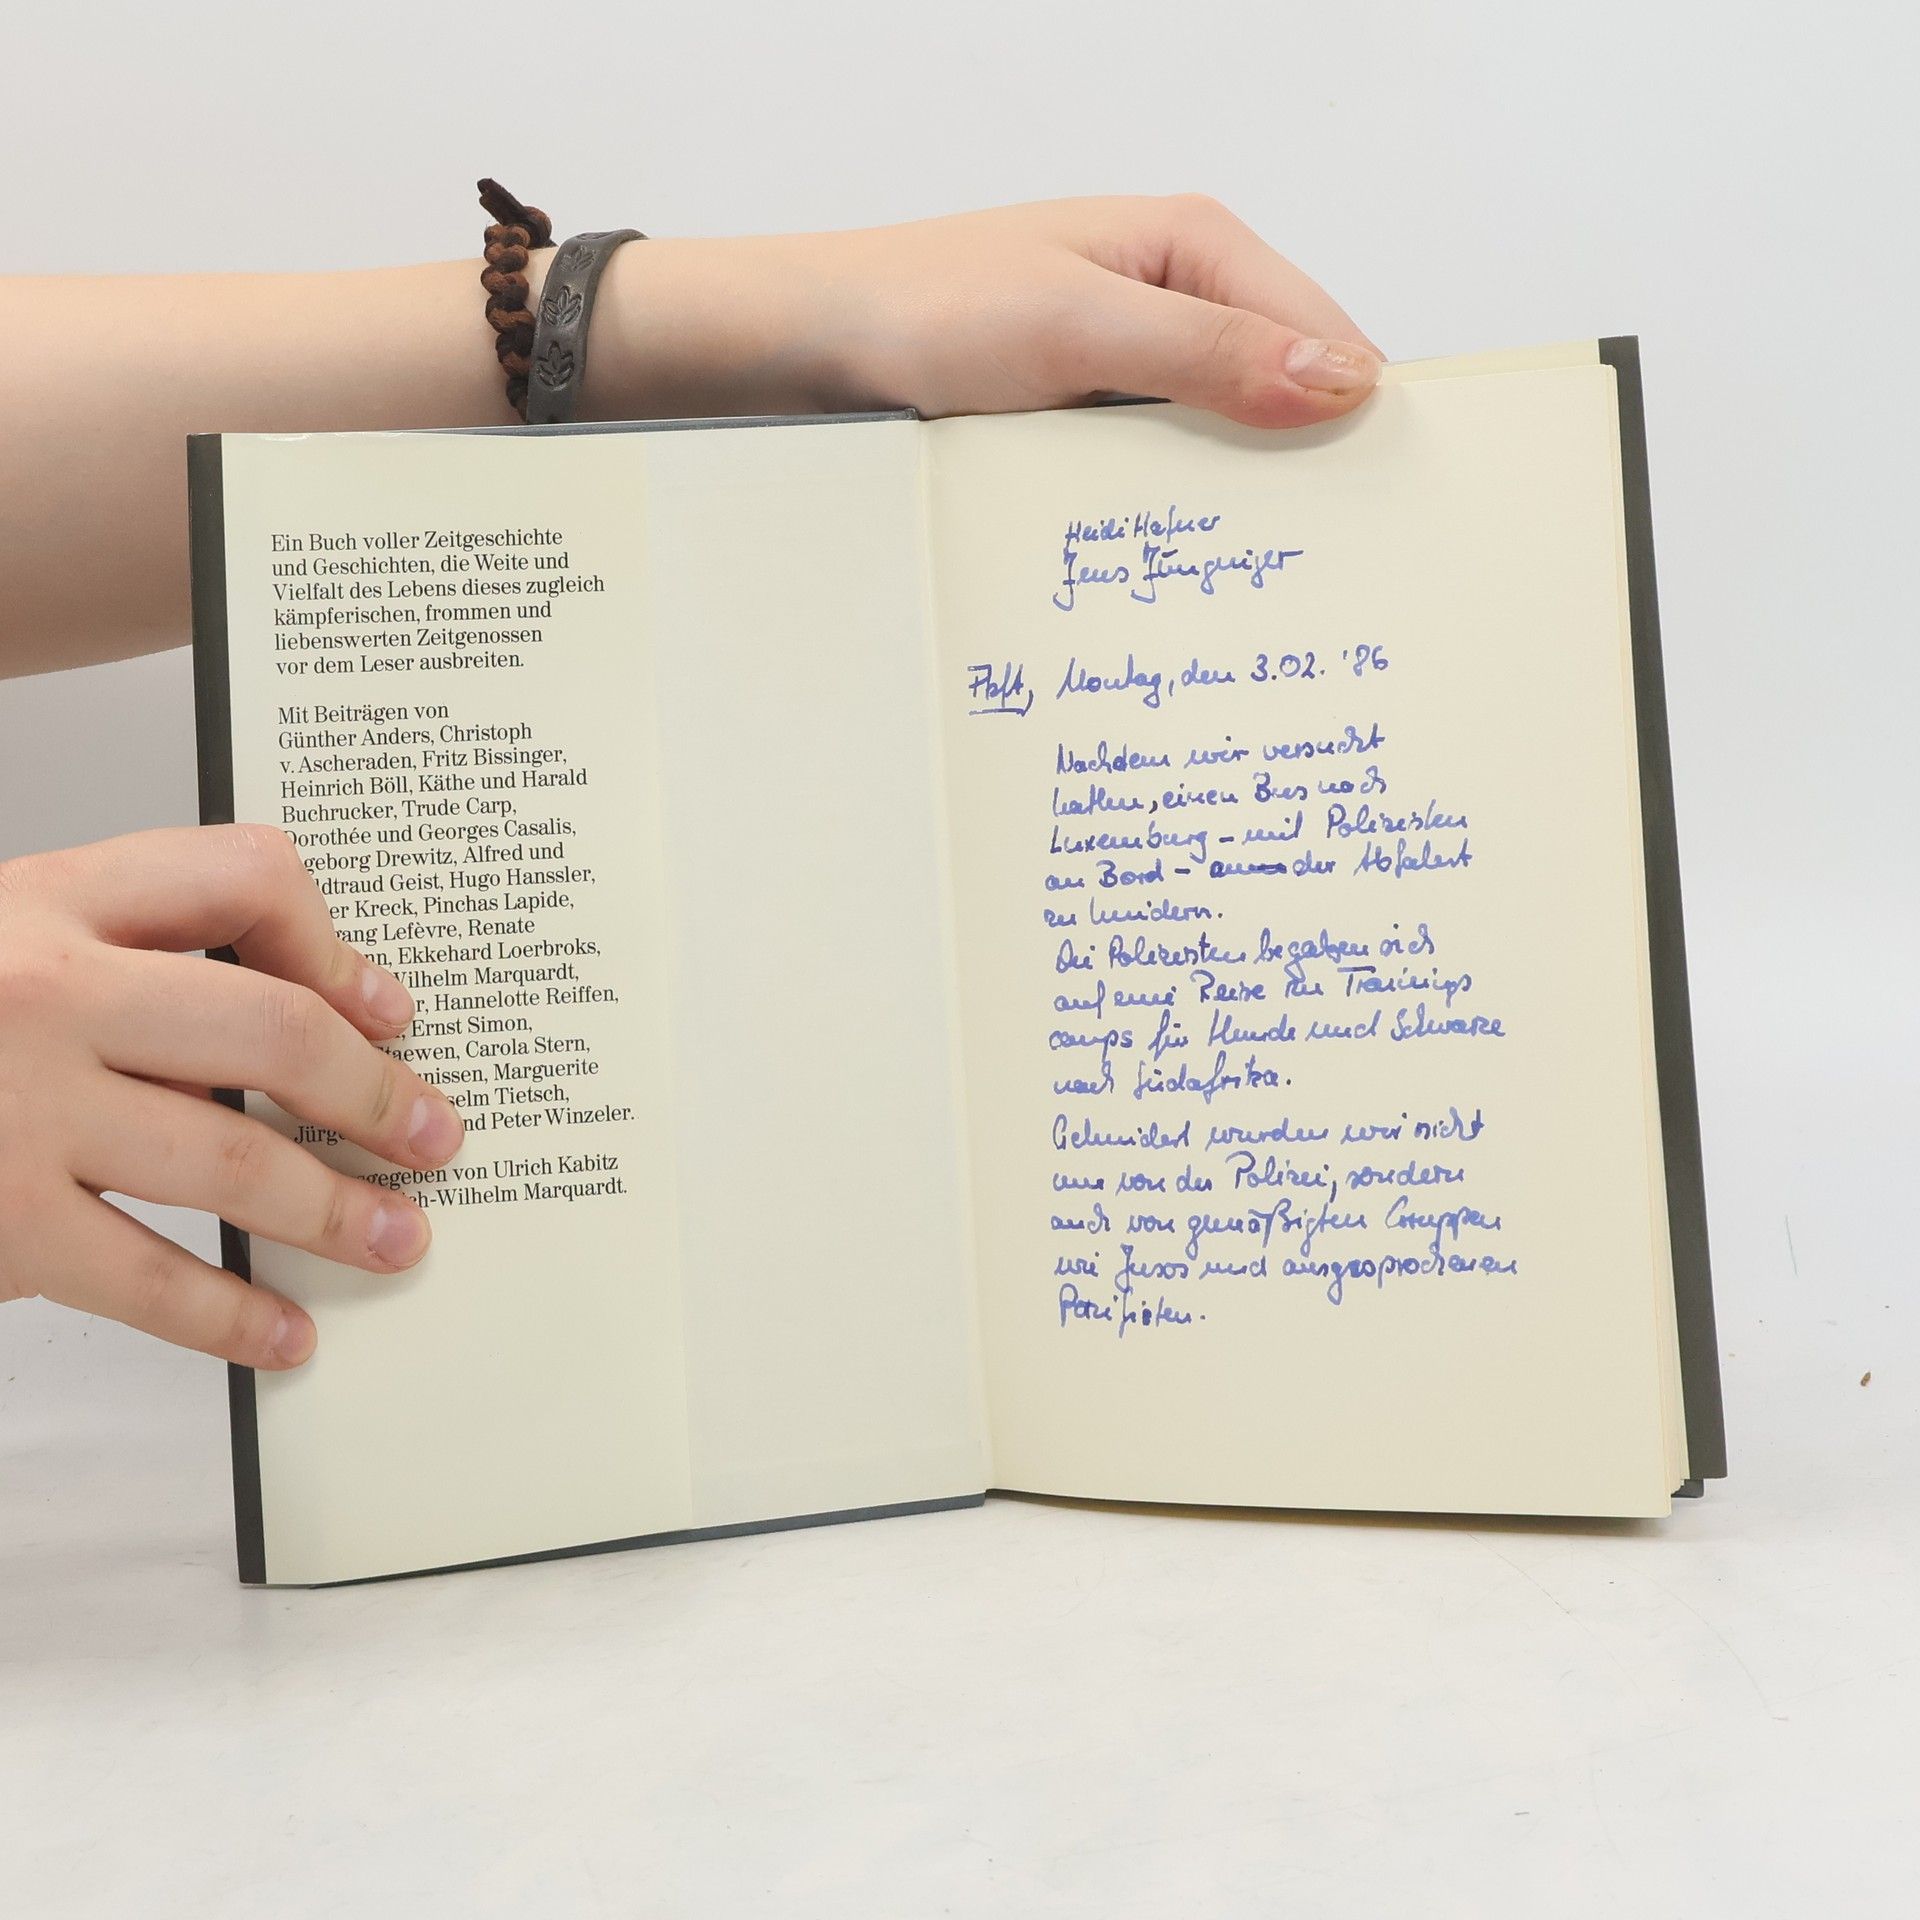 Ein Buch voller Zeitgeschichte
und Geschichten, die Weite und
Vielfalt des Lebens dieses zugleich
kämpferischen, frommen und
liebenswerten Zeitgenossen
vor dem Leser ausbreiten.
Mit Beiträgen von
Günther Anders, Christoph
v. Ascheraden, Fritz Bissinger,
Heinrich Böll, Käthe und Harald
Buchrucker, Trude Carp,
Dorothée und Georges Casalis,
geborg Drewitz, Alfred und
ldtraud Geist, Hugo Hanssler,
er Kreck, Pinchas Lapide,
gang Lefèvre, Renate
nn, Ekkehard Loerbroks,
Wilhelm Marquardt,
r, Hannelotte Reiffen,
, Ernst Simon,
taewen, Carola Stern,
nissen, Marguerite
selm Tietsch,
Jürge nd Peter Winzeler.
sgegeben von Ulrich Kabitz
ch-Wilhelm Marquardt.
Heidi Hafner
Jens
Montag, den 3.02. '86
Nachdem wir versucht
hatten, einen Bus nach
Luxemburg – mit Polizisten
an Bord – an der Abfahrt
zu hindern.
Die Polizisten begaben sich
auf eine Reise zu Trainings
camps für Hunde und Schwarze
nach Südafrika.
Gehindert wurden wir nicht
nur von der Polizei, sondern
auch von gemäßigten Gruppen
wie Jusos und ausgesprochenen
Pazifisten.